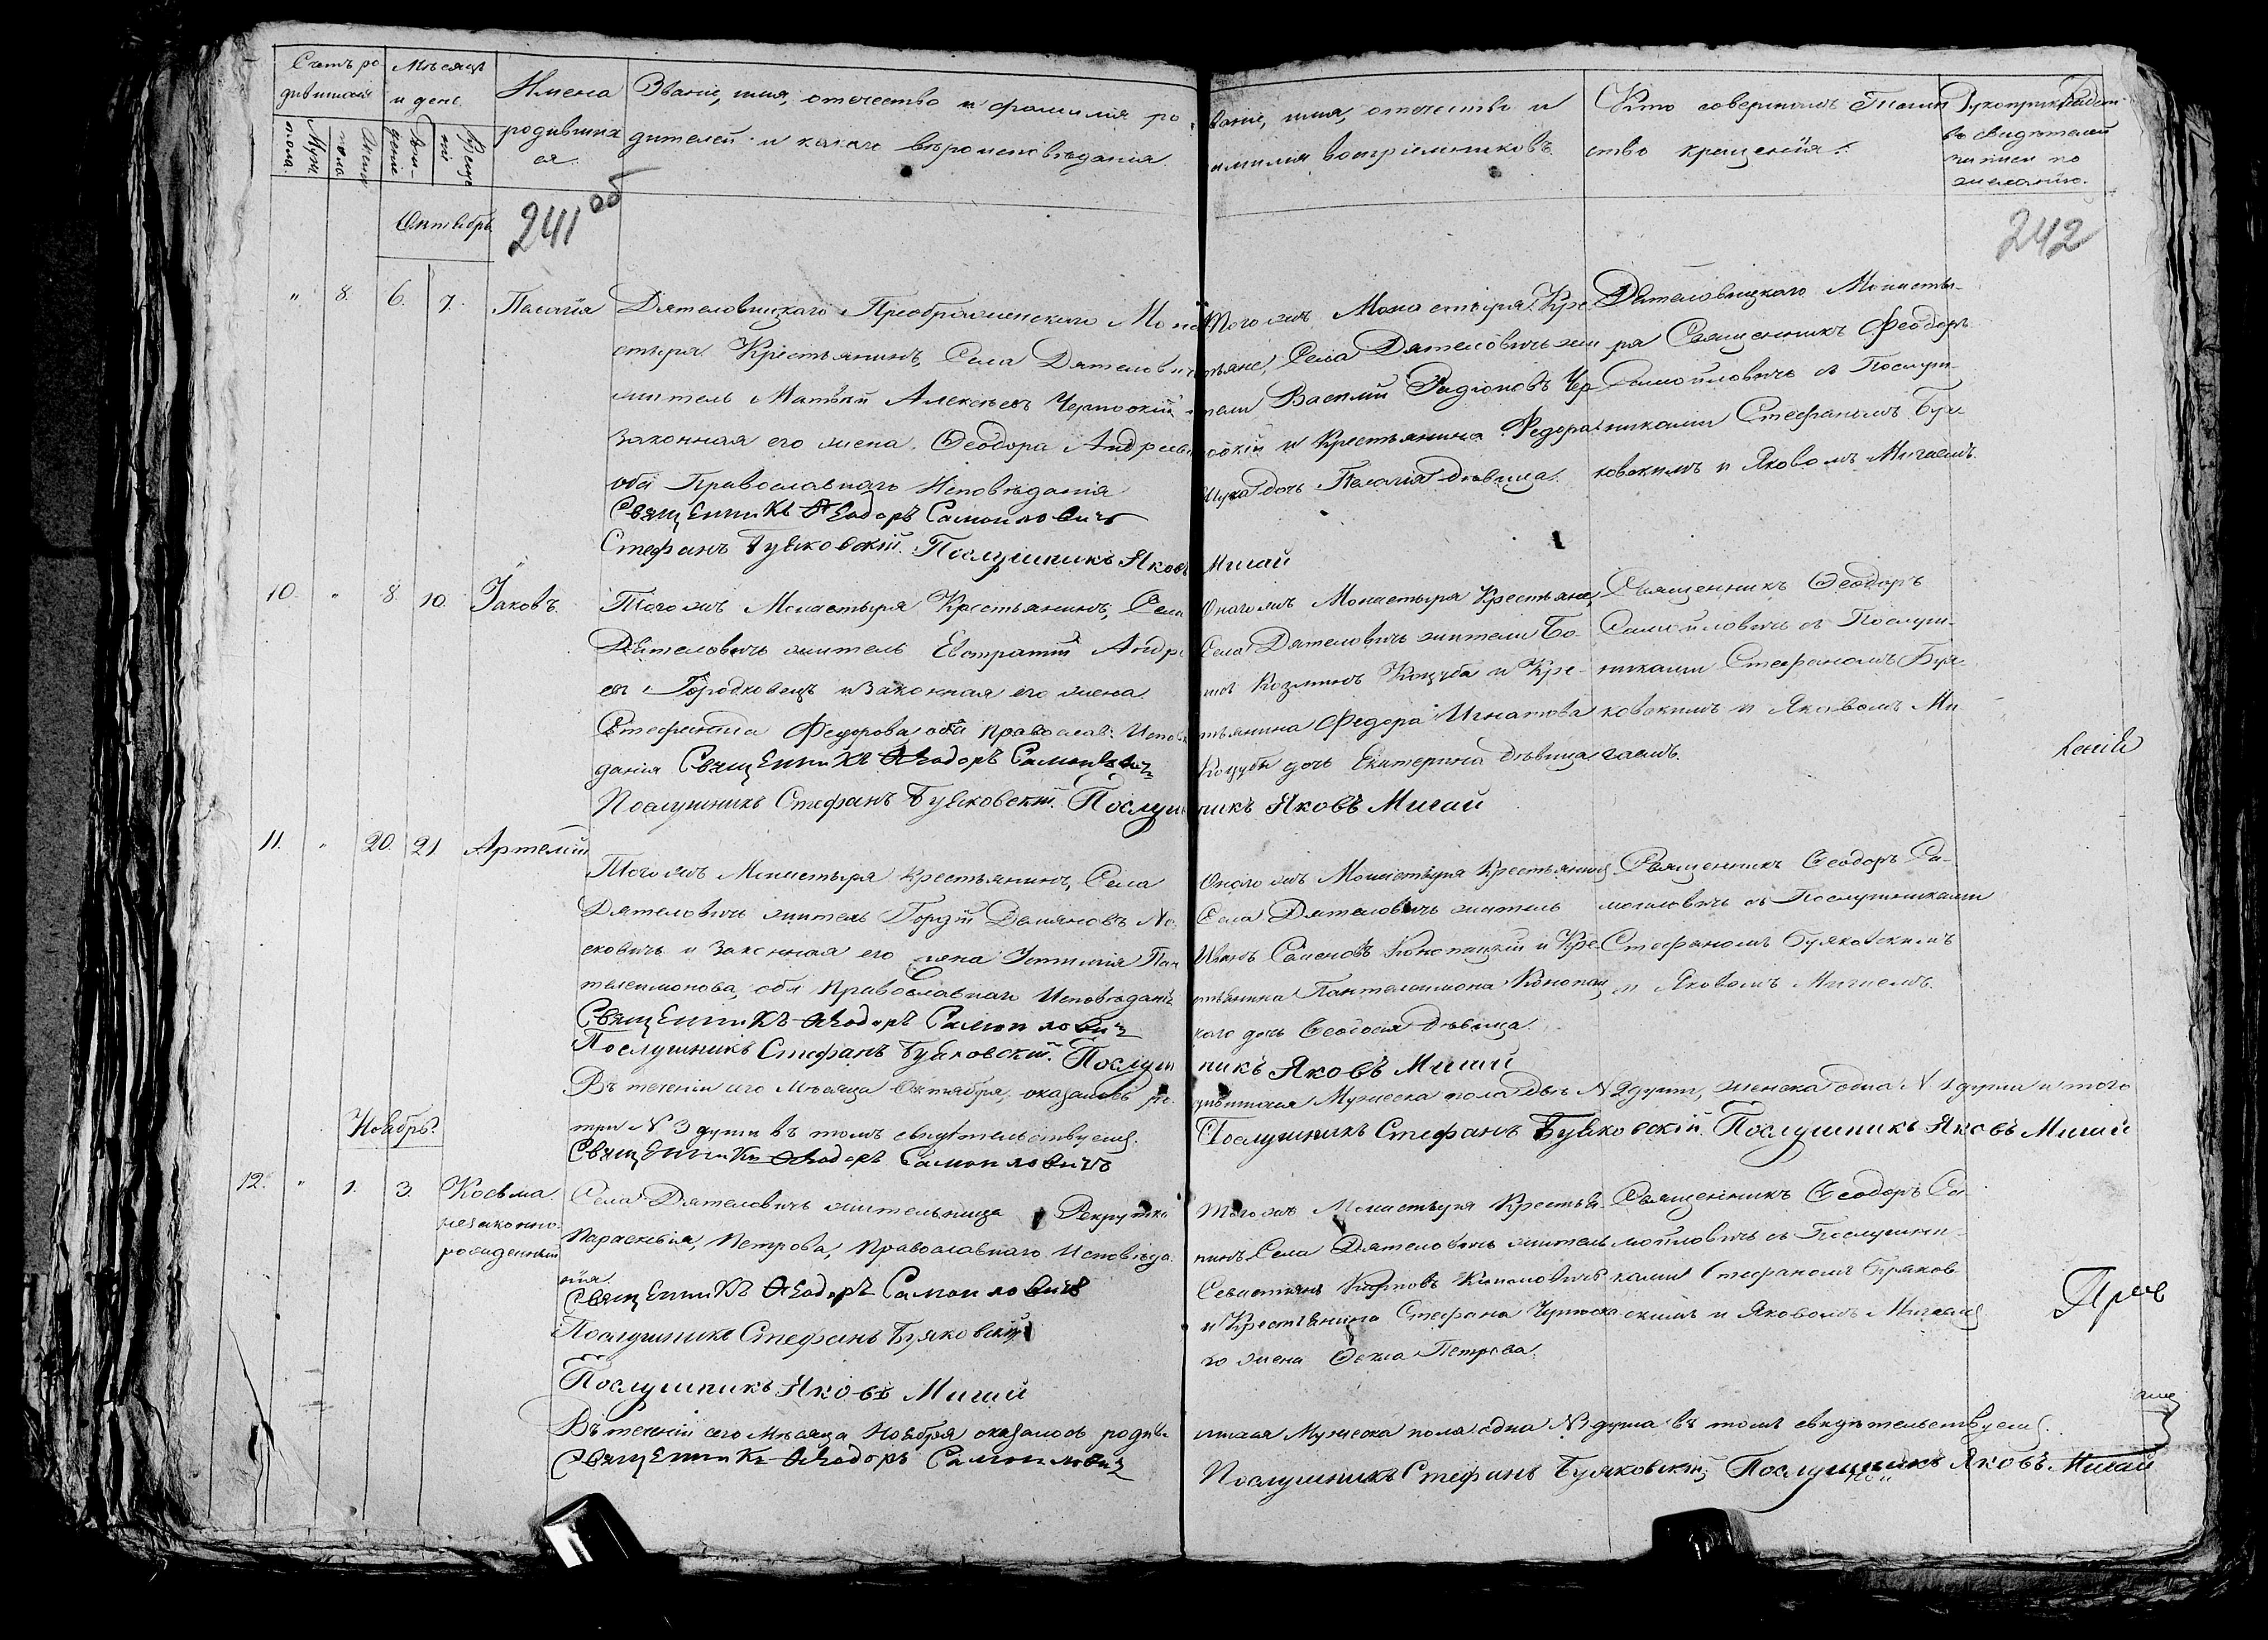 Счетъ ро
дившихся
Мужес.
пола.
Женск.
пола.
Мѣсяцъ
и день.
Рож-
денія
Креще
нія
Имена
родивших
ся.
Званіе, имя, отечество и фамилія ро
дителей и какаго вѣроисповѣданія
Званіе, имя, отечество и
фамилія воспріемниковъ.
Кто совершалъ Таин
ство крещенія.
Рукоприкладст-
во свидѣтелей
записи по
желанію.
Октябрь
241 об
242
" 8. 6. 7. Пелагія
Дятеловицкаго Преображенскаго Мона
стыря Крестьянинъ, Села Дятеловичъ
житель Матвѣй Алексѣевъ Чернокій и
Законная его жена Ѳеодора Андреева
оба Православнаго Исповѣданія
СвященникЪ Ѳеодоръ Самойловичъ
Стефанъ Буяковскій. Послушникъ Яковъ Мигай
Того жъ Монастыря Кре
стьяне, Села Дятеловичъ жи
тели Василій Родіоновъ Чер
нокій и Крестьянина Федора
дочь Пелагія дѣвица.
Дятеловицкаго Монасты-
ря Священникъ Ѳеодоръ
Самойловичъ съ Послуш-
никами Стефаномъ Буя
ковскимъ и Яковомъ Мигаемъ.
10. " 8. 10. Іаковъ.
Того жъ Монастыря Крестьянинъ, Села
Дятеловичъ житель Евстратій Андре
евъ Городковецъ и Законная его жена
Стефанида Федорова оба Православ: Исповѣ
данія СвященникЪ Ѳеодоръ Самойловичъ
Послушникъ Стефанъ Буяковскій. Послушникъ Яковъ Мигай
Онаго жъ Монастыря Крестьяне,
Села Дятеловичъ жители
Козминъ Коцуба и Кре-
стьянина Федора Игнатова
Коцубы дочь Екатерина дѣвица
Священникъ Ѳеодоръ
Самойловичъ съ Послуш-
никами Стефаномъ Буя-
ковскимъ и Яковомъ Ми-
гаемъ.
11. " 20. 21 Артемій
Того жъ Монастыря Крестьянинъ, Села
Дятеловичъ житель Гордѣй Демяновъ Но
сковичъ и Законная его жена Пан
телеимонова, оба Православнаго Исповѣданія
СвященникЪ Ѳеодоръ Самойловичъ
Послушникъ Стефанъ Буяковскій. Послушникъ Яковъ Мигай
Онаго жъ Монастыря Крестьянинъ
Села Дятеловичъ житель
Иванъ Семеновъ Конопацкій и Кре
стьянина Пантелеимона Конопац
каго дочь Ѳеодосія дѣвица.
Священникъ Ѳеодоръ Са-
мойловичъ съ Послушниками
Стефаномъ Буяковскимъ
и Яковомъ Мигаемъ.
Въ теченіи сего Мѣсяца Октября, оказалось ро-
дившихся Мужеска пола двѣ N 2 души, женска одна N 1 души и того
три N 3 души въ томъ свидѣтельствуемъ.
СвященникЪ Ѳеодоръ Самойловичъ
Послушникъ Стефанъ Буяковскій. Послушникъ Яковъ Мигай
Ноябрь.
12. " 1. 3. Косьма
незаконно-
рожденный
Села Дятеловичъ жительница Рекрутка
Параскевія, Петрова, Православнаго Исповѣда
нія.
СвященникЪ Ѳеодоръ Самойловичъ
Послушникъ Стефанъ Буяковскій
Послушникъ Яковъ Мигай
Того жъ Монастыря Крестья-
нинъ Села Дятеловичъ житель
Севастьянъ Карповъ
и Крестьянина Стефана Черноска
го жена Ѳекла Петрова.
Священникъ Ѳеодоръ Са
мойловичъ съ Послушни-
ками Стефаномъ Буяков
скимъ и Яковомъ Мигаемъ
Въ теченіи сего Мѣсяца Ноября оказалось родив
шихся Мужеска пола одна N 1 душа въ томъ свидѣтельствуемъ.
СвященникЪ Ѳеодоръ Самойловичъ
Послушникъ Стефанъ Буяковскій Послушникъ Яковъ Мигай